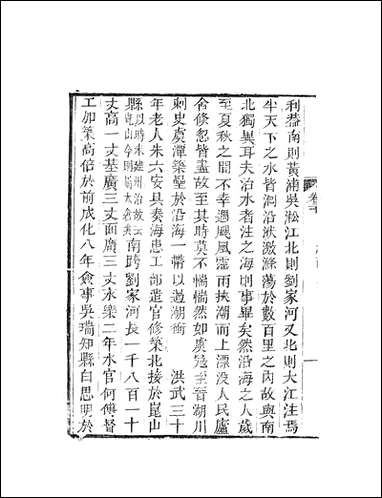 利葢南則黃浦吳淞江北則劉家河又北則大江注焉
半天下之水皆洄沿洑激滌蕩於數百里之內故與南
北獨異耳夫治水者注之海則事畢矣然沿海之人歲
至夏秋之間不幸遇颶風霪雨挾潮而上漂沒人民廬
舍倏忽皆盡故至其時莫不惴惴然如虞寇至晉湖川
刺史虞潭築壘於沿海一帶以遏潮衝　洪武三十
年老人朱六安具奏海患工部遣官修築北接於崑山
縣以時未建州治故云崑山今則屬太倉矣南跨劉家河長一千八百一十
丈高一丈基廣三丈面廣三丈永樂二年水官何傅督
工加築高倍於前成化八年僉事吳瑞知縣白思明於